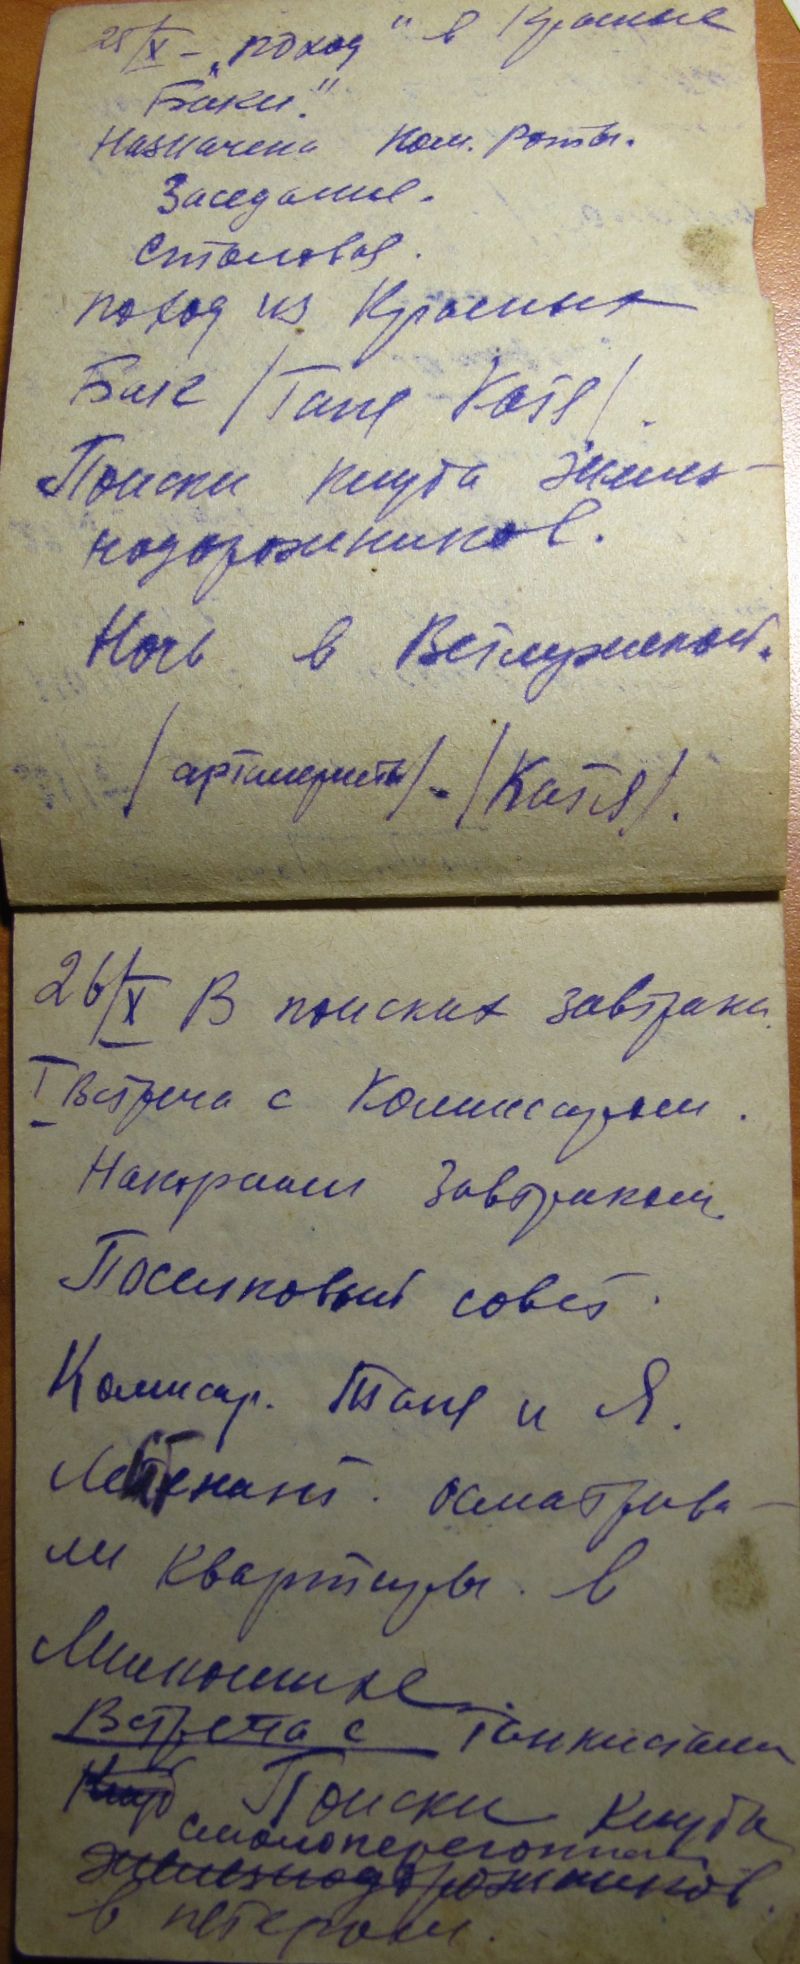 25/X – "поход" в Красные
Баки."
Назначена ком. роты.
Заседание.
Столовая.
поход из Красных
Бак /Таня Катя/.
Поиски клуба желез-
нодорожников.
Ночь в Ветлужской.
/артиллеристы/ - /Катя/.
26/X В поисках завтрака
I Встреча с Комиссаром.
Накормили завтраком
Поселковый совет.
Комиссар. Таня и Я.
Лейтенант. осматрива-
ли квартиры. в
Встреча с Танкистами
Клуб Поиски клуба
железнодорожников.
в